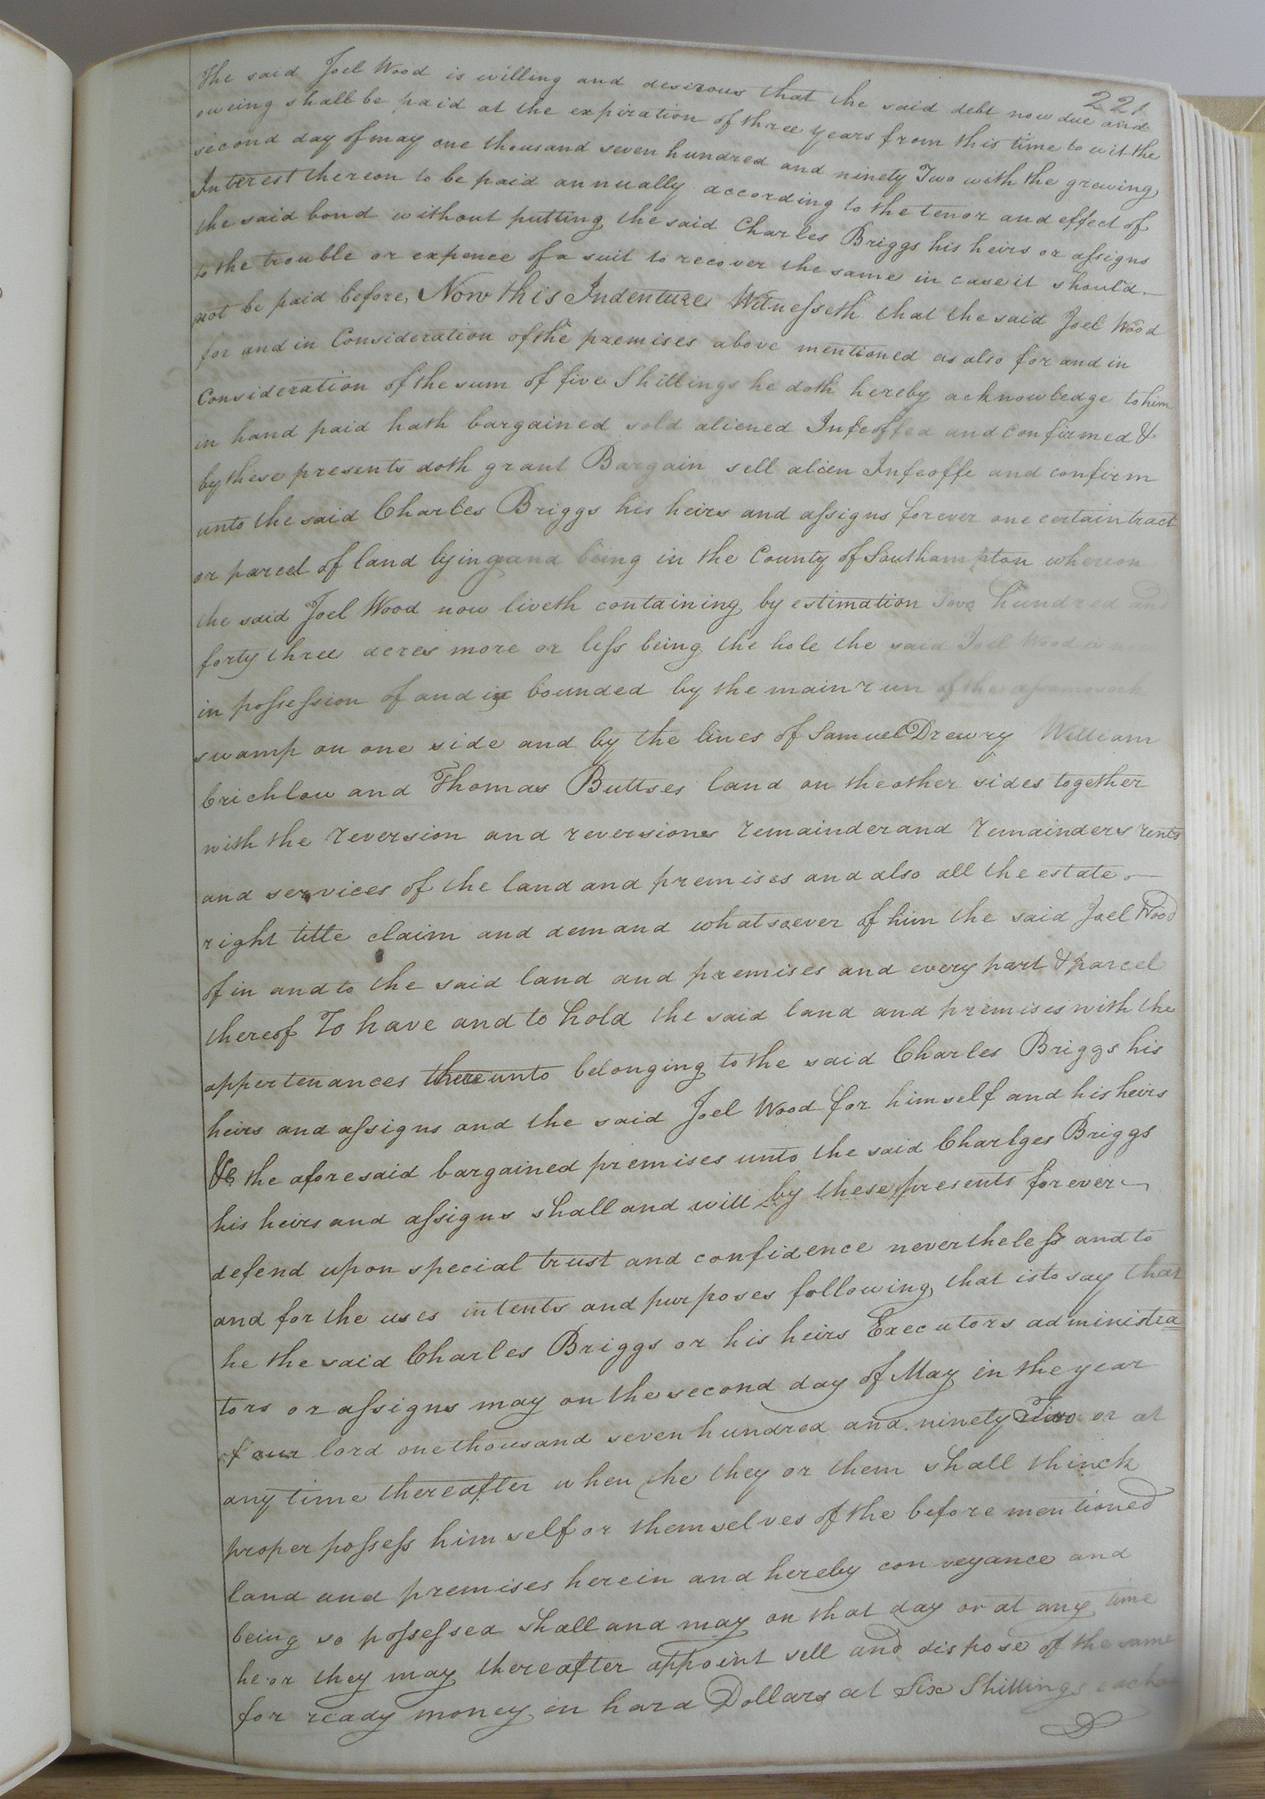 221
The said Joel Wood is willing and desirous that the said debt now due and
oweing shall be paid at the expiration of three years from this time to wit the
second day of may one thousand seven hundred and ninety Two with the growing
Interest thereon to be paid annually according to the tenor and effect of
the said bond without putting the said Charles Briggs his heirs or assigns
to the trouble or expence of a suit to recover the same in case it should
not be paid before, Now this Indenture Witnesseth that the said Joel Wood
for and in Consideration of the premises above mentioned as also for and in
Consideration of the sum of five Shillings he doth hereby acknowledge to him
in hand paid hath bargained sold aliened Infeoffed and confirmed &
by these presents doth grant Bargain sell alien Infeoffe and confirm
unto the said Charles Briggs his heirs and assigns forever one certain tract
or parcel of land lying and being in the County of Southampton whereon
the said Joel Wood now liveth containing by estimation Two hundred and
forty three acres more or less being the hole the said Joel Wood is now
in possession of and is bounded by the main run of the
swamp on one side and by the lines of Samuel Drewry William
Crichlow and Thomas Buttses land on the other sides together
with the reversion and reversions remainder and remainders rents
and services of the land and premises and also all the estate
right title claim and demand whatsoever of him the said Joel Wood
of in and to the said land and premises and every part & parcel
thereof To have and to hold the said land and premises with the
appertenances thereunto belonging to the said Charles Briggs his
heirs and assigns and the said Joel Wood for himself and his heirs
&c the aforesaid bargained premises unto the said Charlges Briggs
his heirs and assigns shall and will by these presents forever
defend upon special trust and confidence nevertheless and to
and for the uses intents and purposes following that is to say that
he the said Charles Briggs or his heirs Executors administra
tors or assigns may on the second day of May in the year
of our lord one thousand seven hundred and ninety Two or at
any time thereafter when he they or them shall thinck
proper possess himself or themselves of the before mentioned
land and premises herein and hereby conveyance and
being so possessed shall and may on that day or at any time
he or they may thereafter appoint sell and dispose of the same
for ready money in hard Dollars at Six Shillings each